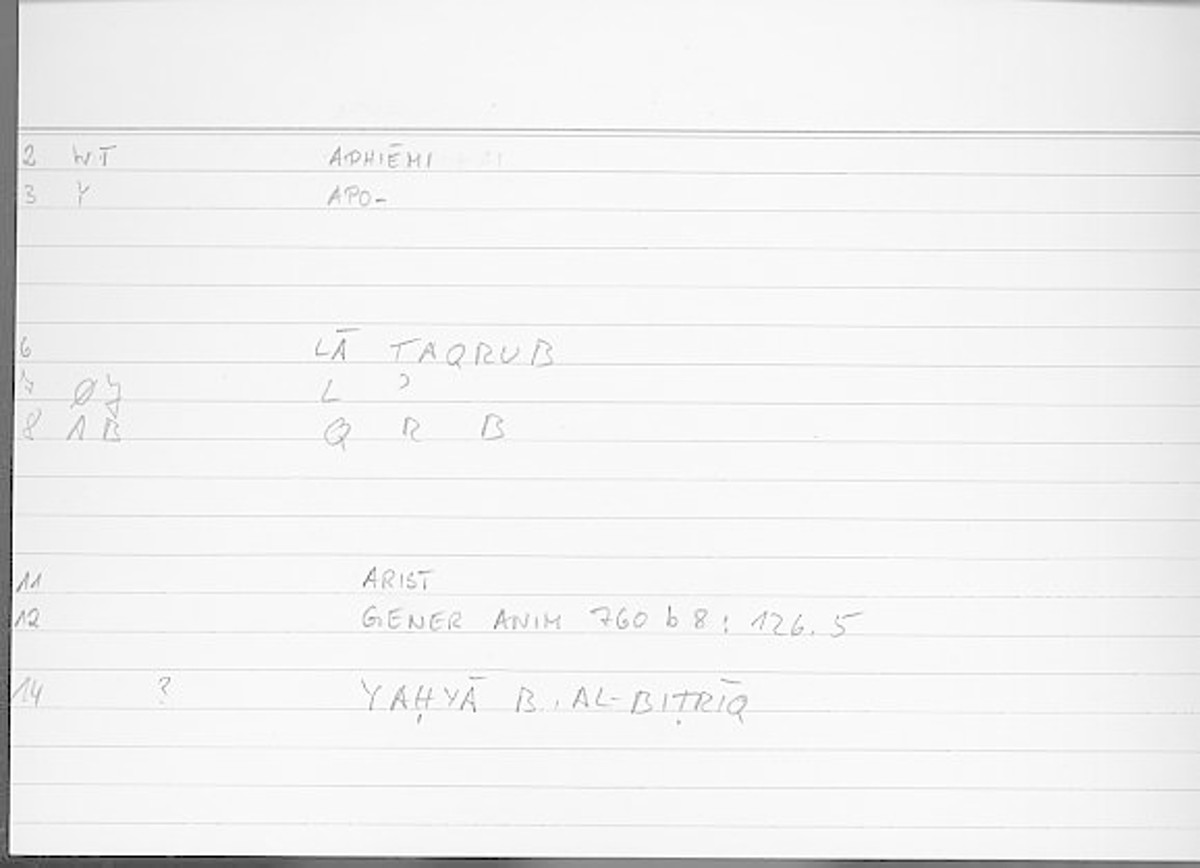 2 WT APHIĒMI
3 Y APO-
6 LĀ TAQRUB
7 ØJ L ʾ
8 1B Q R B
11 ARIST
12 GENER ANIM 760 b 8 : 126.5
14 ? YAḤYĀ B. AL-BIṬRĪQ